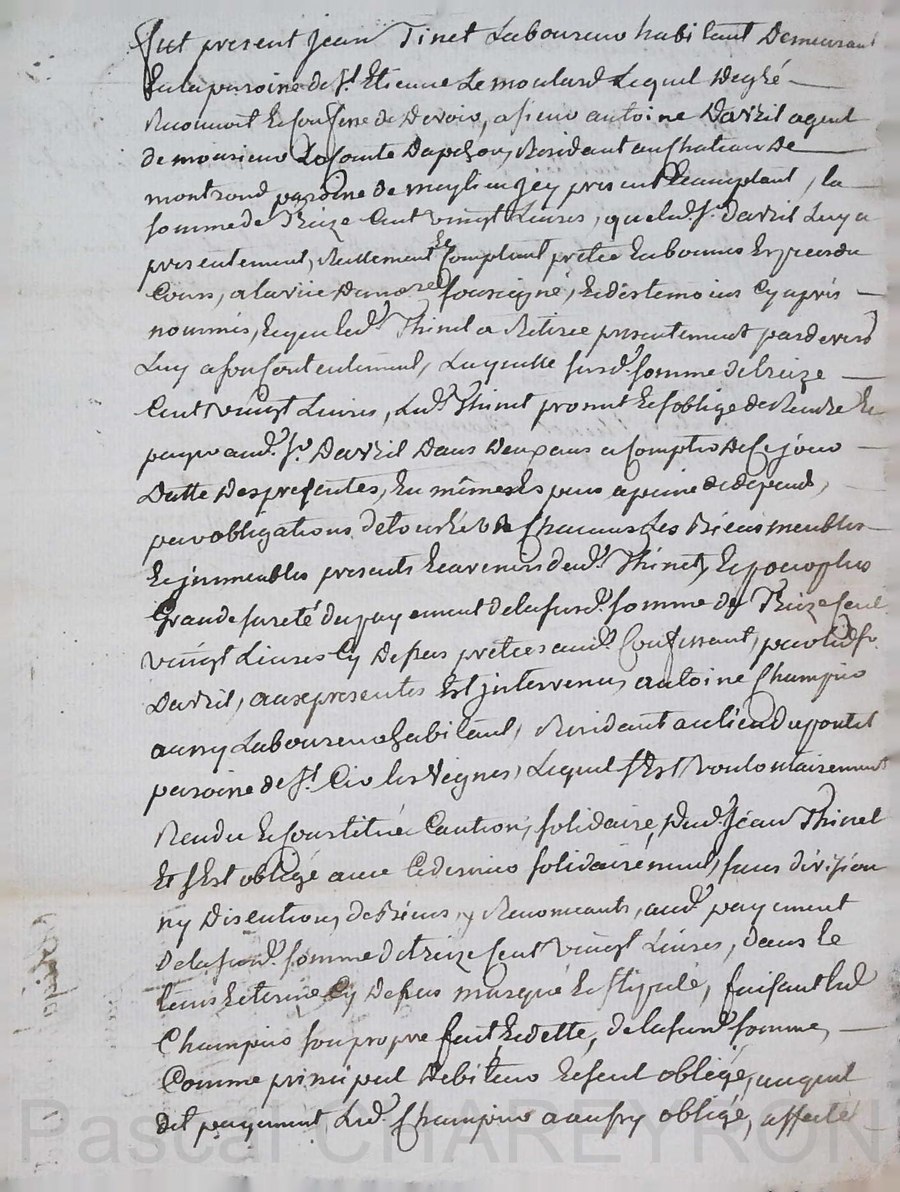 fut present jean Tinet Laboureur habitant Demeurant
En la paroice de St. Etienne Le moulard Lequel De gré
Reconnoit Et Confesse de Devoir, a sieur antoine Davril agent
de monsieur Le Comte Dapchon, Residant au Chateau De
montrond paroice de meylieu jcy present Acceptant, la
somme de Treize Cent vingt Livres, que led. Sr. davril Luy a
presentement, Reellement Et Comptant pretée En bonnes Especes du
Cours, a la vüe Du no.re soussigné, Et des temoins Cy après
nommés, Et que led. Thinet a Retirée presentement par devers
Luy a son Contentement, Laquelle susd. somme de treize
Cent vingt Livres, Led. Thinet promet Et s'oblige de Rendre Et
payer aud. Sr. Davril Dans Deux ans a Compter De Ce jour
Datte Des presentes, En mêmes Especes a peine de depens,
par obligations de tous Et Chacuns Les Biens meubles
Et jmmeubles presents Et avenirs dud. Thinet, Et pour plus
Grande sureté du payement de la susd. somme de Treize Cent
vingt Livres Cy Dessus pretées aud. Confessant, par led. Sr.
Davril, aux presentes Est jntervenu antoine Champier
aussy Laboureur habitant, Residant au lieu du pontet
paroice de St. Cir les Vignes, Lequel s'Est Voulontairement
Rendu Et Constitué Caution, solidaire, Dud. Jean Thinet
Et s'Est obligé avec Ce dernier solidairement, sans division
ny Discution, de Biens, y Renonceants, aud. payement
de la susd. somme de treize Cent vingt Livres, dans le
tems Et terme Cy Dessus marqué Et stipulé, faisant led
Champier son propre fait Et dette, de la susd. somme,
Comme principal Debiteur Et seul obligé, auquel
dit payement, Led. Champier a aussy obligé, affecté
Pascal CHAREYRON